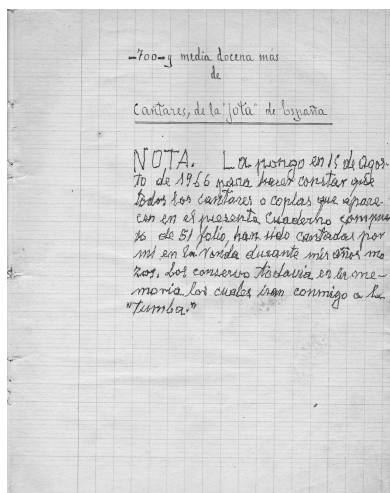 -700- y media docena más
de
Cantares, de la "jota" de España
NOTA. La pongo en 15 de Agos-
to de 1966 para hacer constar que
todos los cantares o coplas que apare-
cen en el presente Cuaderno compues
to de 51 folio, han sido cantadas por
mi en la ronda durante mis años mo
zos. Los conservo todavia en la me-
moria los cuales iran conmigo a la
"Tumba."